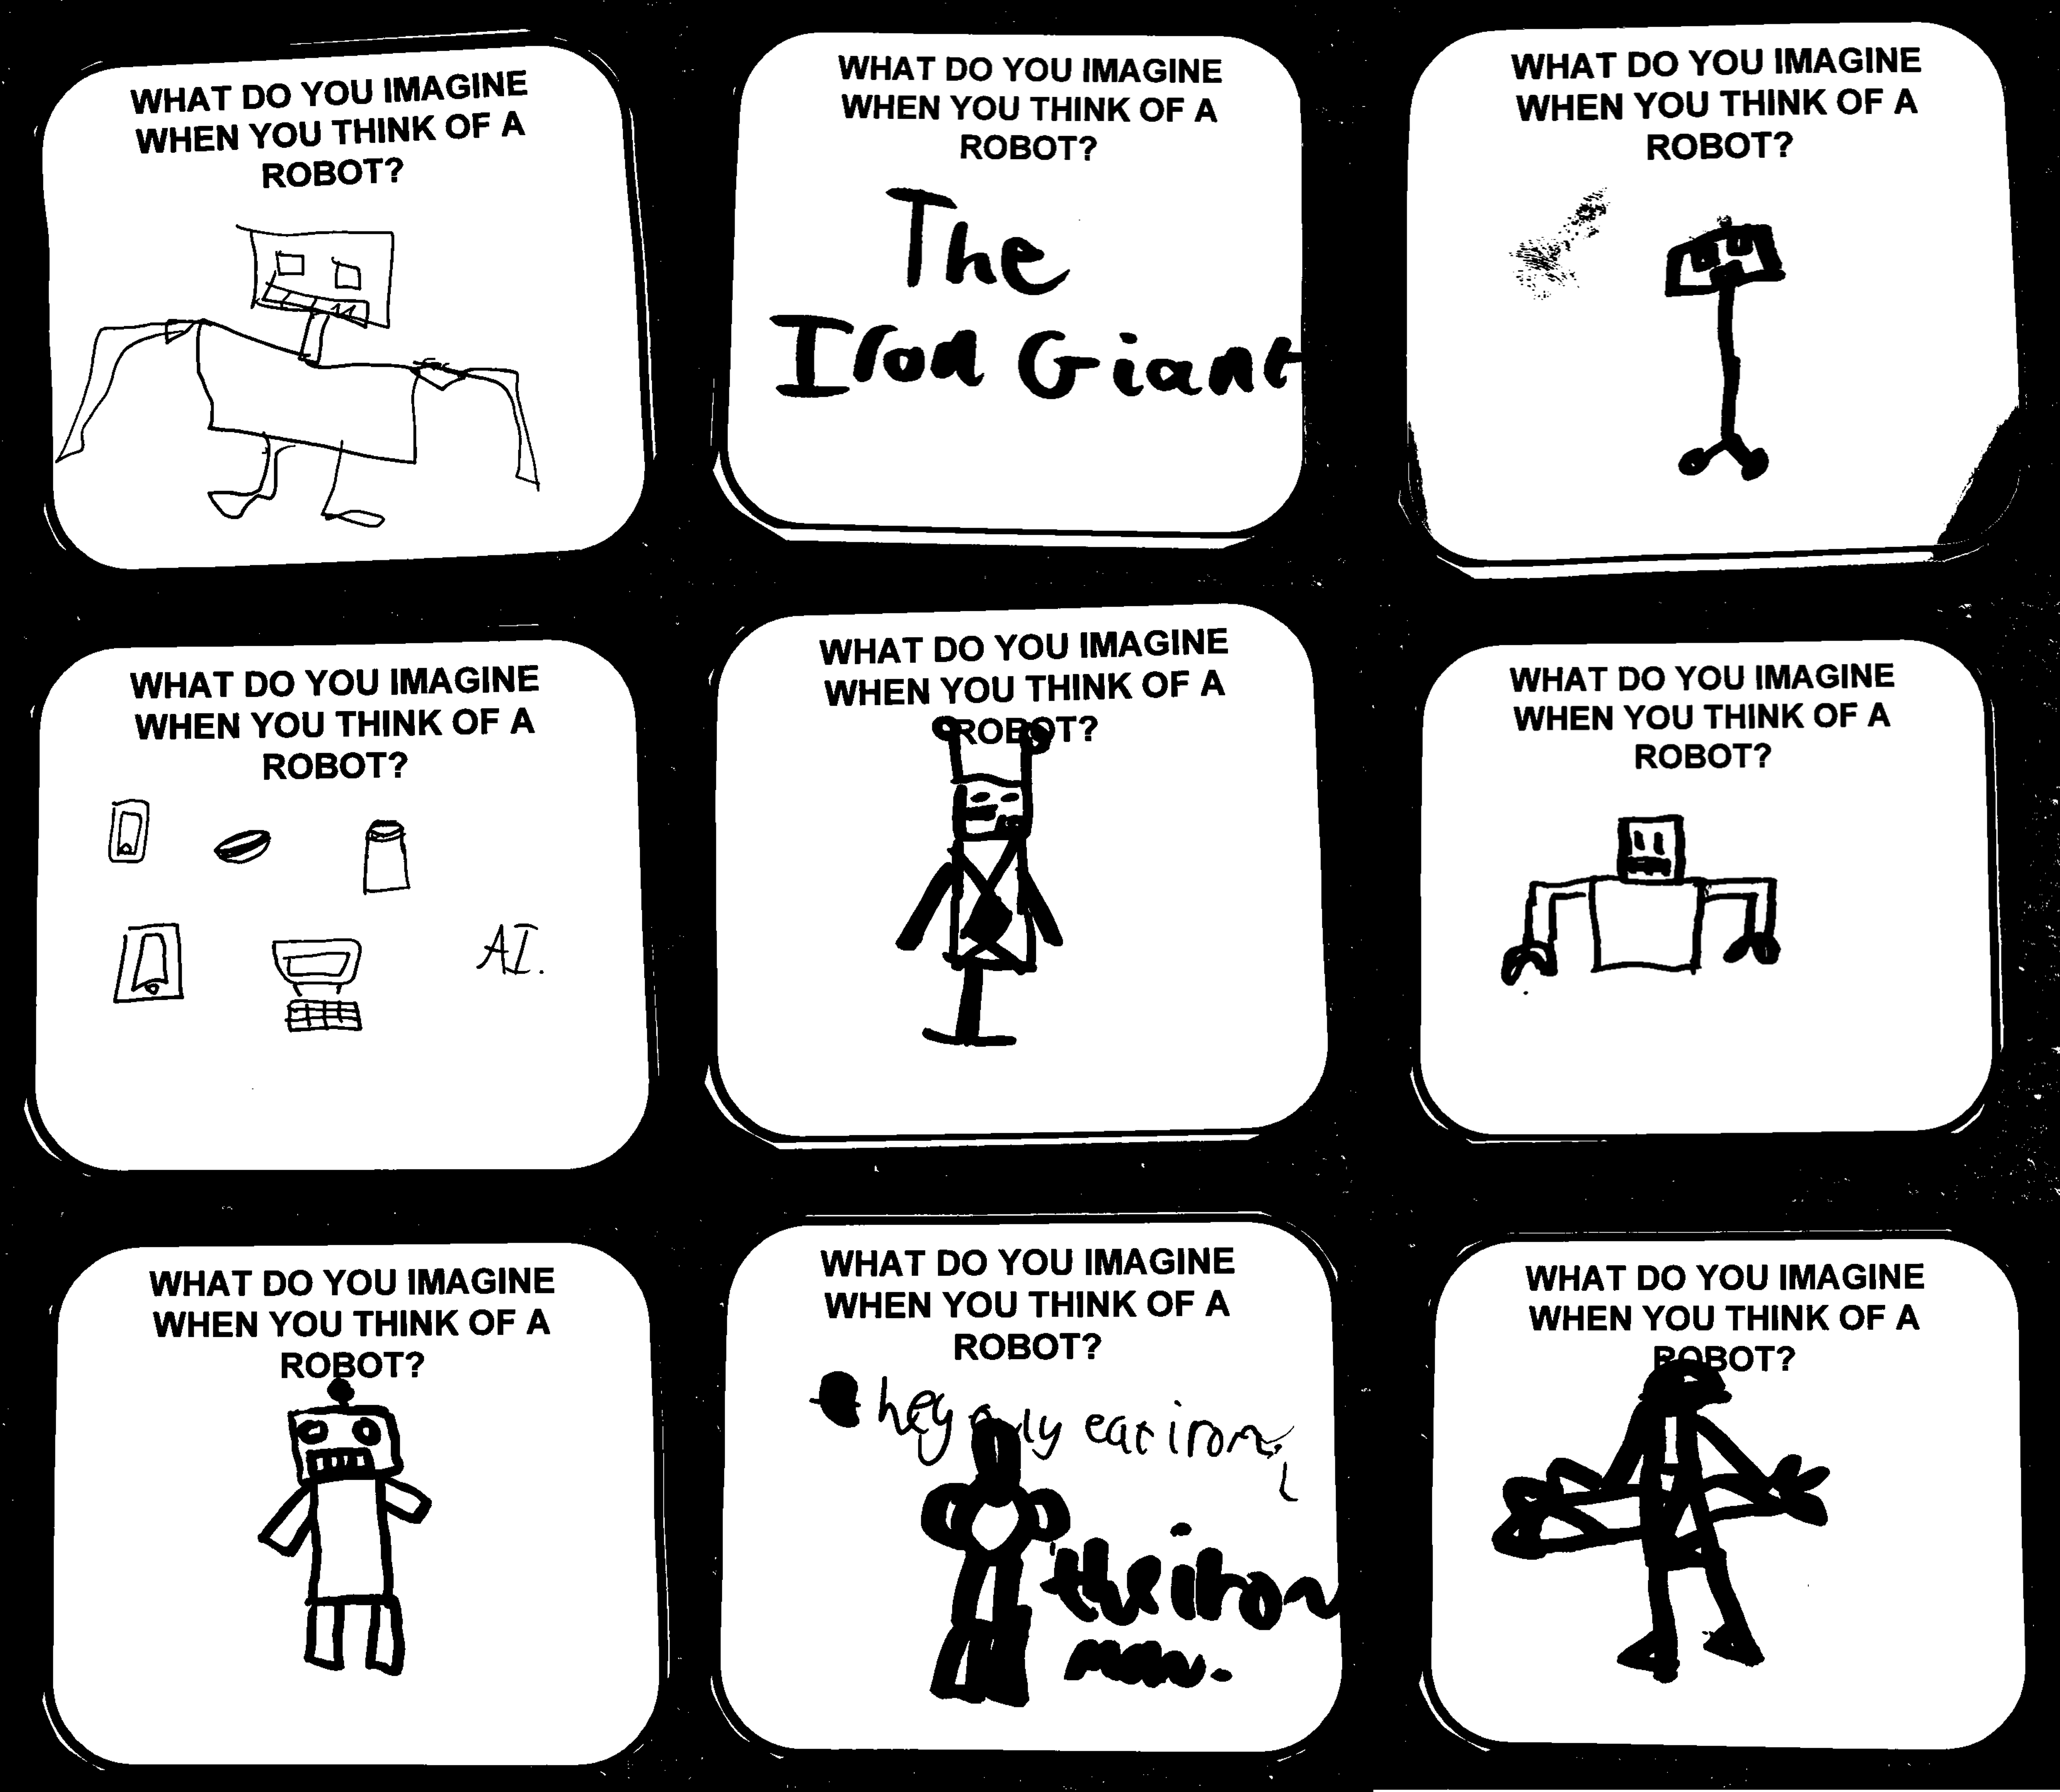 WHAT DO YOU IMAGINE
WHEN YOU THINK OF A
ROBOT?
The
Iron Giant
WHAT DO YOU IMAGINE
WHEN YOU THINK OF A
ROBOT?
WHAT DO YOU IMAGINE
WHEN YOU THINK OF A
ROBOT?
WHAT DO YOU IMAGINE
WHEN YOU THINK OF A
ROBOT?
AI.
WHAT DO YOU IMAGINE
WHEN YOU THINK OF A
ROBOT?
WHAT DO YOU IMAGINE
WHEN YOU THINK OF A
ROBOT?
WHAT DO YOU IMAGINE
WHEN YOU THINK OF A
ROBOT?
WHAT DO YOU IMAGINE
WHEN YOU THINK OF A
ROBOT?
hey only eat iron,
the iron
man.
WHAT DO YOU IMAGINE
WHEN YOU THINK OF A
ROBOT?